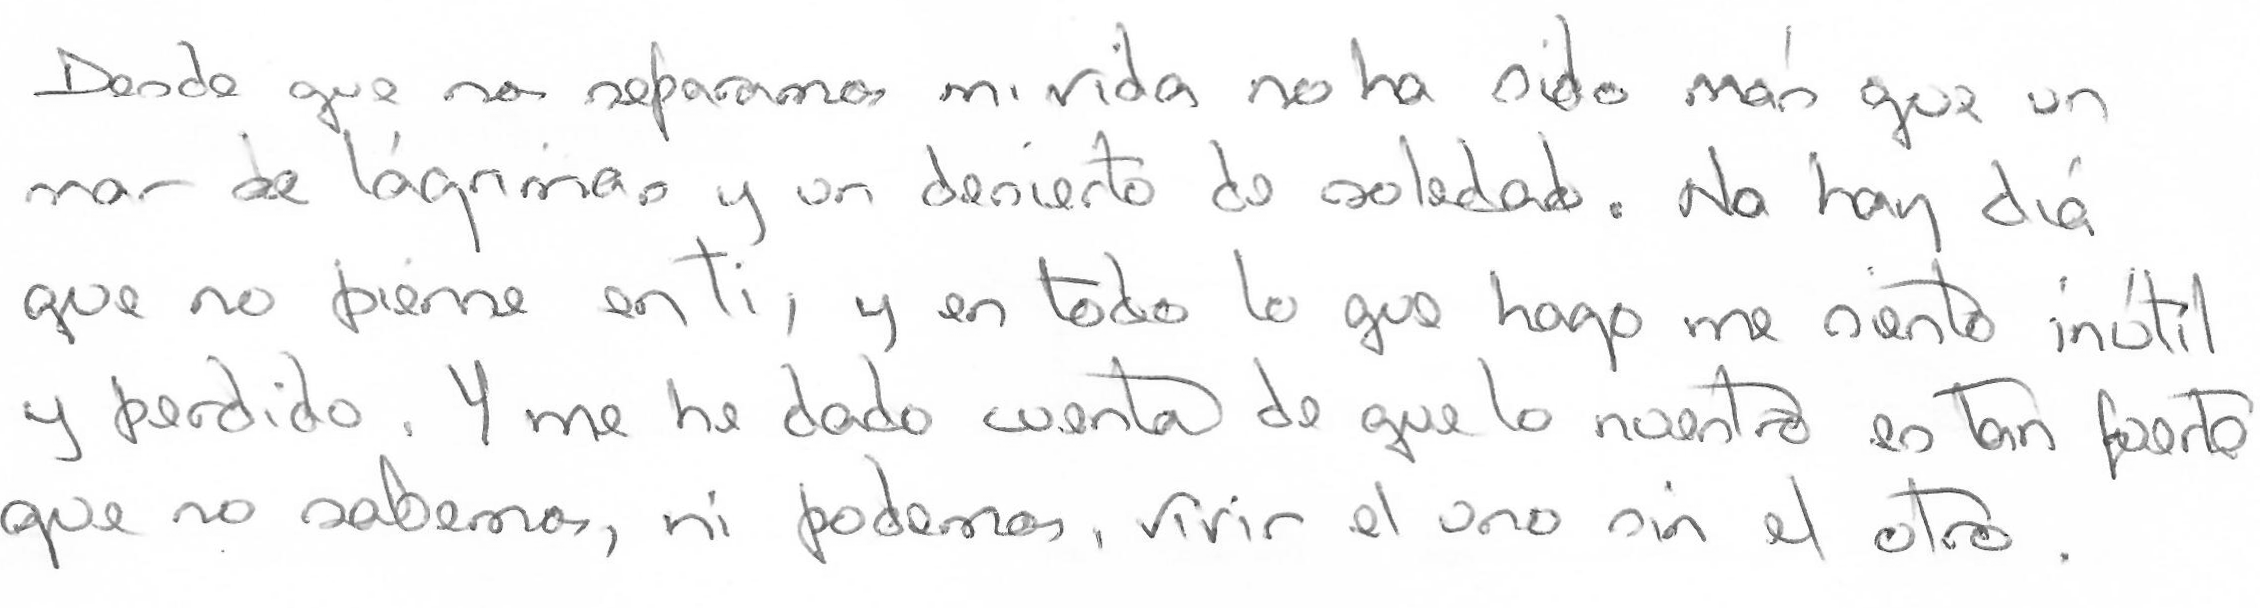 Desde que nos separamos mi vida no ha sido más que un
mar de lágrimas y un desierto de soledad. No hay día
que no piense en ti, y en todo lo que hago me siento inútil
y perdido. Y me he dado cuenta de que lo nuestro es tan fuerte
que no sabemos, ni podemos, vivir el uno sin el otro.